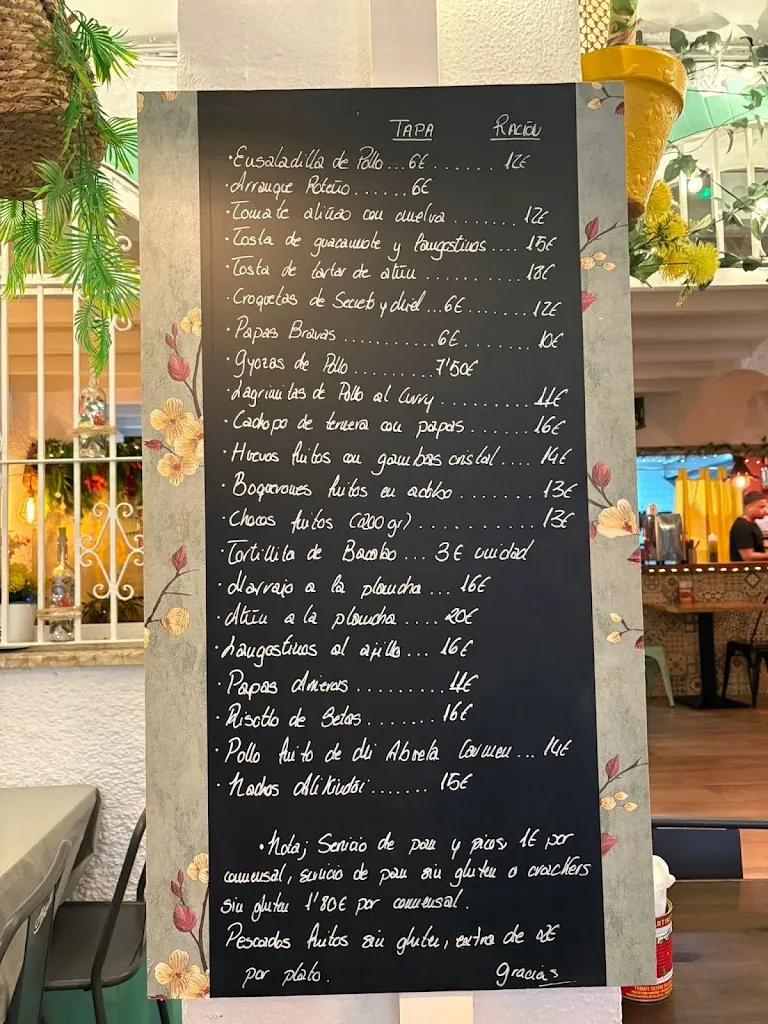 TAPA RACIÓN
·Ensaladilla de Pollo...6€.......12€
·Arranque Roteño......6€
·Tomate aliñao con melva........12€
·Tosta de guacamole y langostinos....15€
·Tosta de tartar de atún..........18€
·Croquetas de Secreto y miel...6€.......12€
·Papas Bravas..........6€........10€
·Gyozas de Pollo.........7'50€
·Lagrimitas de Pollo al Curry..........11€
·Cachopo de ternera con papas.......16€
·Huevos fritos con gambas cristal....14€
·Boquerones fritos en adobo.........13€
·Chocos fritos (200gr)............13€
·Tortillita de Bacalao...3€ unidad
·Marrajo a la plancha...16€
·Atún a la plancha....20€
·Langostinos al ajillo...16€
·Papas Arrieras..........11€
·Risotto de Setas.......16€
·Pollo frito de Mi Abuela Carmen...14€
·Nachos......15€
·Nota; Servicio de pan y picos 1€ por
comensal, servicio de pan sin gluten o crackers
sin gluten 1'80€ por comensal.
Pescados fritos sin gluten, extra de 2€
por plato. gracias